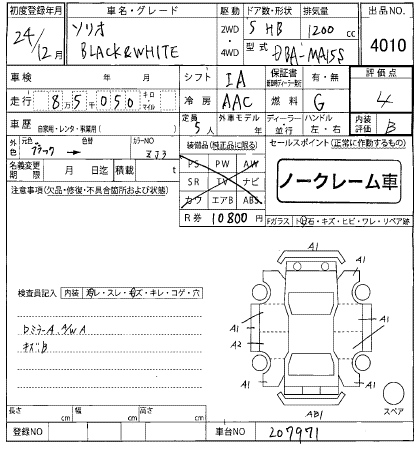 初度登録年月 車名・グレード 駆動 ドア数・形状 排気量 出品NO.
24/12月 ソリオ BLACK&WHITE 2WD・4WD 5 HB 1200 cc 4010
型式 DBA-MA15S
車検 年 月 シフト IA 保証書 有・無 評価点
走行 8万5千050 キロ マイル 冷房 AAC 燃料 G 4
車歴 自家用・レンタ・事業用( ) 定員 5人 外車モデル 年 ディーラー 並行 ハンドル 左・右 内装評価 B
外色 元色 ブラック → 色替 カラーNO ZJ3 装備品(純正品に限る) セールスポイント(正常に作動するもの)
名義変更期限 月 日迄 積載 t PS PW AW
SR TV ナビ
カワ エアB ABS
ノークレーム車
注意事項(欠品・修復・不具合箇所および状態) R券 10800円 Fガラス トビ石・キズ・ヒビ・ワレ・リペア跡
A1
A1
検査員記入 内装 汚レ・スレ・キズ・キレ・コゲ・穴
A1
A1
DミラーA、A/W A A2
キズB
A1 A1
AB1 スペア
長さ cm 幅 cm 高さ cm
登録NO 車台NO 207971